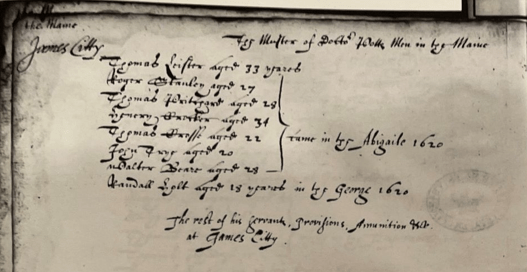 the Maine
James Citty
The Muster of Docto^r Potts Men in the Maine
Thomas Leister aged 33 yeares
Roger Stanley aged 27
Thomas Pritchard aged 28
Henery Crocker aged 34
Thomas Crosse aged 22
John Trye aged 20
Walter Beare aged 28
came in the Abigaile 1620
Randall Holt aged 18 yeares in the George 1620
The rest of his servants, Provisions, Amunition &c.
at James Citty.